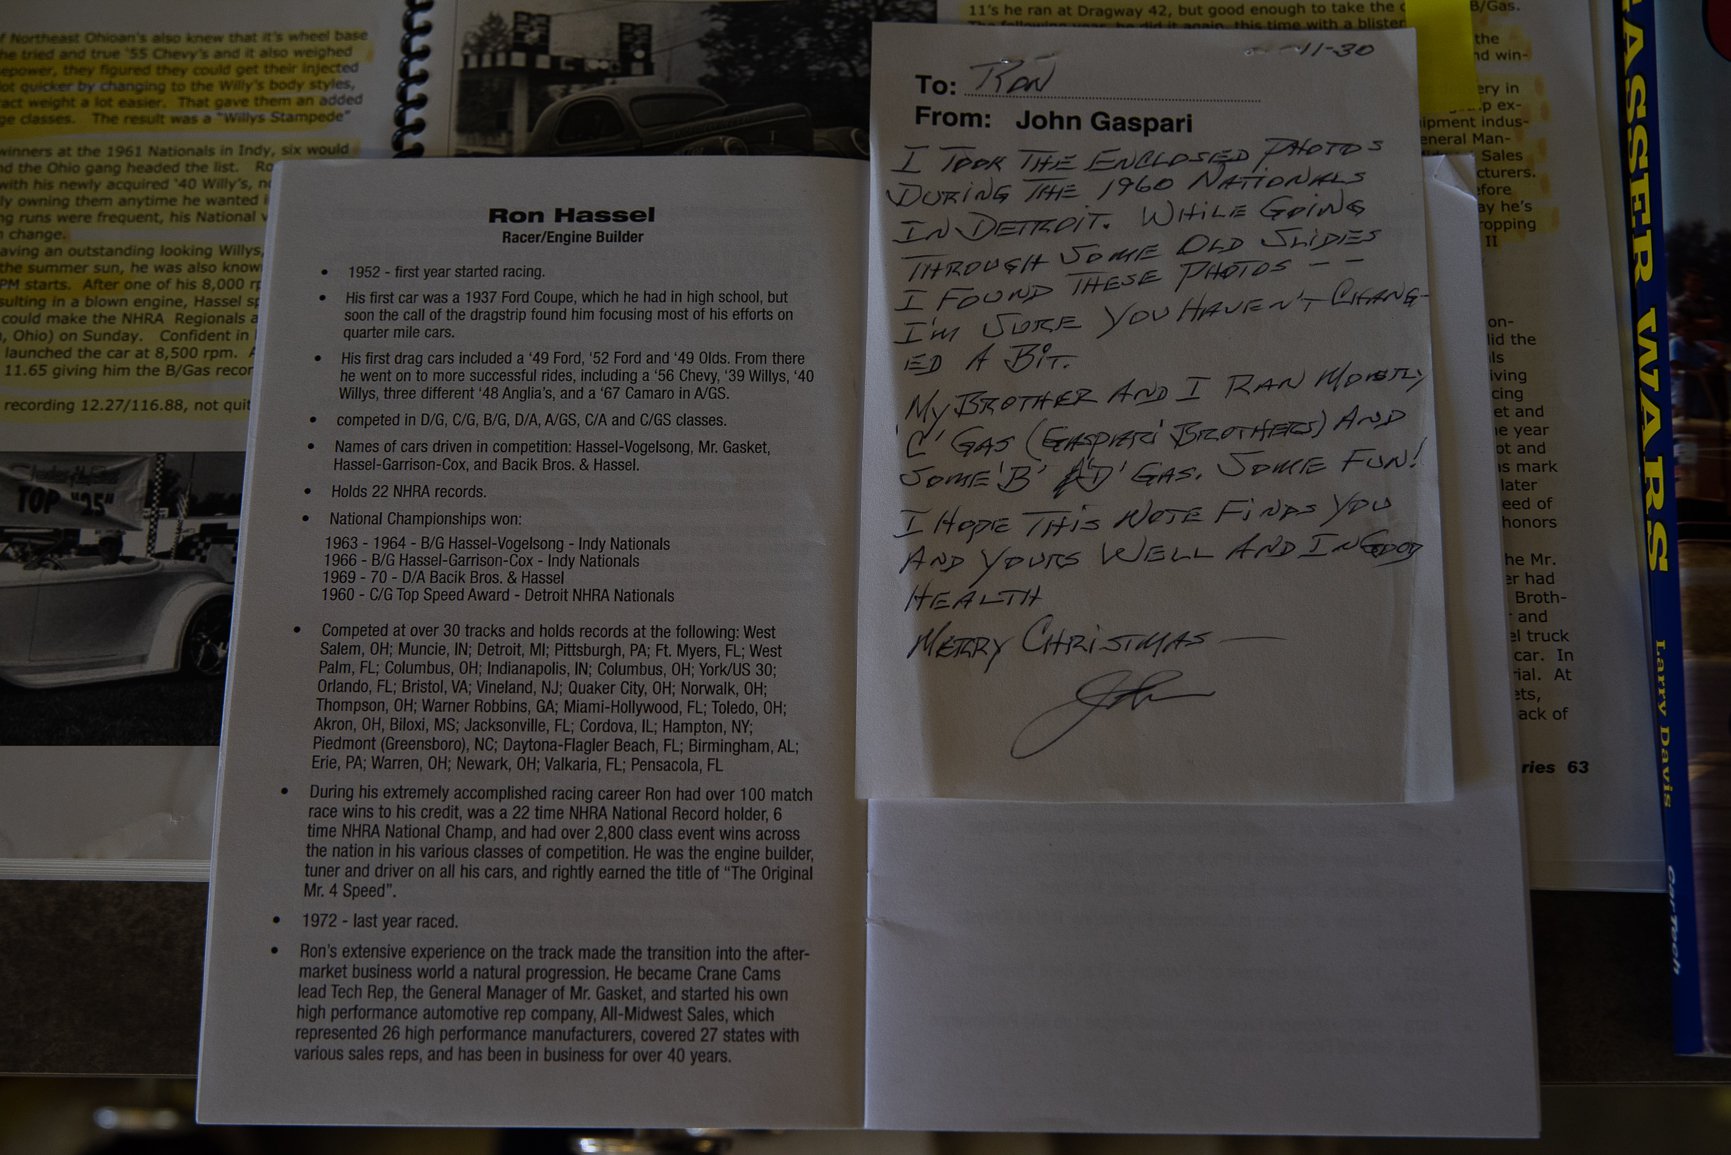 f Northeast Ohioan's also knew that it's wheel base
he tried and true '55 Chevy's and it also weighed
sepower, they figured they could get their injected
lot quicker by changing to the Willy's body styles,
ract weight a lot easier. That gave them an added
ge classes. The result was a "Willys Stampede"
winners at the 1961 Nationals in Indy, six would
nd the Ohio gang headed the list. Ro
with his newly acquired '40 Willy's, n
ly owning them anytime he wanted
ng runs were frequent, his National
change.
aving an outstanding looking Willys,
the summer sun, he was also know
PM starts. After one of his 8,000 r
sulting in a blown engine, Hassel s
could make the NHRA Regionals a
, Ohio) on Sunday. Confident in
launched the car at 8,500 rpm.
11.65 giving him the B/Gas recor
recording 12.27/116.88, not quit
TOP "25"
Ron Hassel
Racer/Engine Builder
• 1952 - first year started racing.
• His first car was a 1937 Ford Coupe, which he had in high school, but
soon the call of the dragstrip found him focusing most of his efforts on
quarter mile cars.
• His first drag cars included a '49 Ford, '52 Ford and '49 Olds. From there
he went on to more successful rides, including a '56 Chevy, '39 Willys, '40
Willys, three different '48 Anglia's, and a '67 Camaro in A/GS.
• competed in D/G, C/G, B/G, D/A, A/GS, C/A and C/GS classes.
• Names of cars driven in competition: Hassel-Vogelsong, Mr. Gasket,
Hassel-Garrison-Cox, and Bacik Bros. & Hassel.
• Holds 22 NHRA records.
• National Championships won:
1963 - 1964 - B/G Hassel-Vogelsong - Indy Nationals
1966 - B/G Hassel-Garrison-Cox - Indy Nationals
1969 - 70 - D/A Bacik Bros. & Hassel
1960 - C/G Top Speed Award - Detroit NHRA Nationals
• Competed at over 30 tracks and holds records at the following: West
Salem, OH; Muncie, IN; Detroit, MI; Pittsburgh, PA; Ft. Myers, FL; West
Palm, FL; Columbus, OH; Indianapolis, IN; Columbus, OH; York/US 30;
Orlando, FL; Bristol, VA; Vineland, NJ; Quaker City, OH; Norwalk, OH;
Thompson, OH; Warner Robbins, GA; Miami-Hollywood, FL; Toledo, OH;
Akron, OH, Biloxi, MS; Jacksonville, FL; Cordova, IL; Hampton, NY;
Piedmont (Greensboro), NC; Daytona-Flagler Beach, FL; Birmingham, AL;
Erie, PA; Warren, OH; Newark, OH; Valkaria, FL; Pensacola, FL
• During his extremely accomplished racing career Ron had over 100 match
race wins to his credit, was a 22 time NHRA National Record holder, 6
time NHRA National Champ, and had over 2,800 class event wins across
the nation in his various classes of competition. He was the engine builder,
tuner and driver on all his cars, and rightly earned the title of "The Original
Mr. 4 Speed".
• 1972 - last year raced.
• Ron's extensive experience on the track made the transition into the after-
market business world a natural progression. He became Crane Cams
lead Tech Rep, the General Manager of Mr. Gasket, and started his own
high performance automotive rep company, All-Midwest Sales, which
represented 26 high performance manufacturers, covered 27 states with
various sales reps, and has been in business for over 40 years.
11's he ran at Dragway 42, but good enough to take the B/Gas.
The following year, he did it again, this time with a blister
11-30
To: RON
From: John Gaspari
I TOOK THE ENCLOSED PHOTOS
DURING THE 1960 NATIONALS
IN DETROIT. WHILE GOING
THROUGH SOME OLD SLIDIES
I FOUND THESE PHOTOS - -
I'M SURE YOU HAVEN'T CHANG-
ED A BIT.
MY BROTHER AND I RAN MOSTLY
'C' GAS (GASPARI BROTHERS) AND
SOME 'B' & 'D' GAS. SOME FUN!
I HOPE THIS NOTE FINDS YOU
AND YOURS WELL AND IN GOOD
HEALTH
MERRY CHRISTMAS —
John
the
nd win-
ery in
p ex-
ipment indus-
eneral Man-
Sales
cturers.
efore
ay he's
ropping
II
on-
lid the
ls
iving
cing
et and
e year
ot and
as mark
later
eed of
honors
he Mr.
er had
Broth-
and
el truck
car. In
rial. At
ets,
ack of
ries 63
GASSER WARS
Larry Davis
CarTech